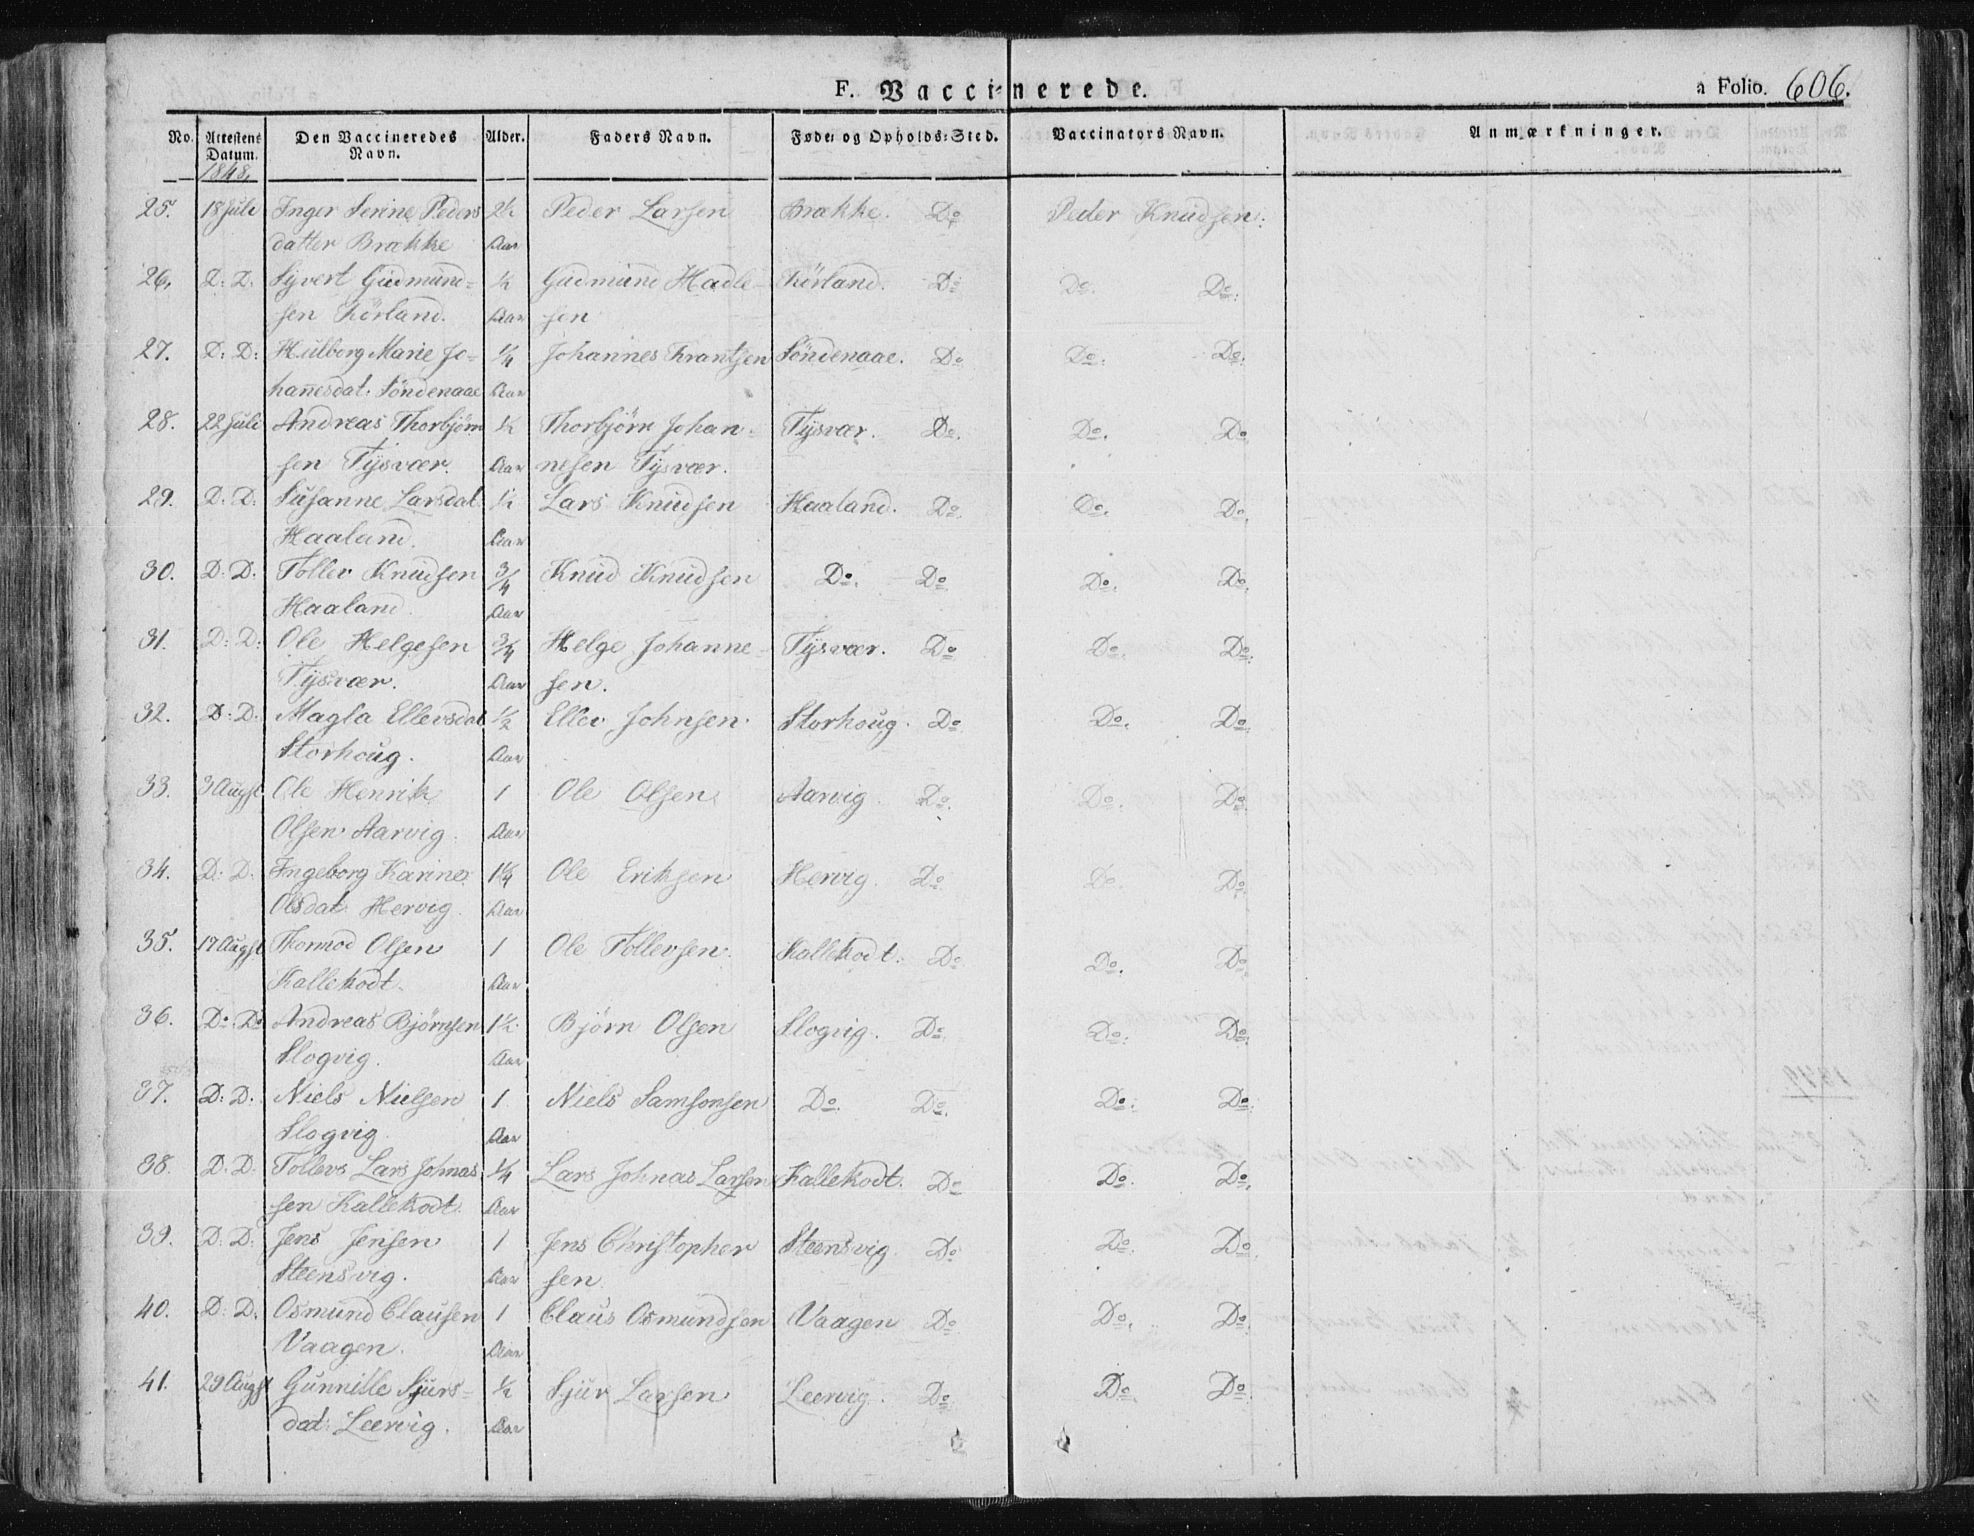 F. Vaccinerede.
a Folio. 606.
No. Attestens Datum. Den Vaccineredes Navn. Alder. Faders Navn. Føde- og Opholds-Sted. Vaccinators Navn. Anmærkninger.
1848.
25. 18 Juli Inger Serine Peders 2½ Peder Larsen Brække. Do Peder Knudsen.
datter Brække Aar
26. D: D. Syvert Gudmund- ½ Gudmund Hadle- Körland. Do Do. Do.
sen Körland. Aar sen
27. D: D: Hulborg Marie Jo- ¼ Johannes Frantsen Söndenaae. Do Do. Do.
hannesdat. Söndenaae Aar
28. 22 Juli Andreas Thorbjörn ½ Thorbjörn Johan- Tysvær. Do. Do. Do.
sen Tysvær. Aar nesen Tysvær.
29. D: D. Susanne Larsdat Lars Knudsen Haaland. Do. Do. Do.
Haaland. Aar
30. D: D: Tollev Knudsen 3/4 Knud Knudsen Do. Do. Do. Do.
Haaland. Aar
31. D: D: Ole Helgesen 3/4 Helge Johanne- Tysvær. Do Do. Do.
Tysvær. Aar sen.
32. D: D. Magla Ellevsdat ½ Ellev Johnsen Storhoug. Do Do. Do.
Storhoug. Aar
33. 3 Augst Ole Henrik 1 Ole Olsen Aarvig. Do. Do. Do.
Olsen Aarvig. Aar
34. D: D. Ingeborg Karine 1¼ Ole Eriksen Hervig. Do. Do. Do.
Olsdat. Hervig. Aar
35. 17 Augst Thormod Olsen 1 Ole Tollevsen. Kallekodt. Do Do. Do.
Kallekodt. Aar
36. Do. Do Andreas Björnsen 1½ Björn Olsen Slogvig. Do. Do. Do.
Slogvig. Aar
37. D: D. Niels Nielsen 1 Niels Samsonsen Do. Do. Do. Do.
Slogvig. Aar
38. D: D. Tollevs Lars Johnas ¼ Lars Johnas Larsen Kallekodt. Do Do. Do.
sen Kallekodt. Aar
39. D: D. Jens Jensen 1 Jens Christopher Steensvig. Do Do. Do.
Steensvig. Aar sen.
40. D: D. Osmund Clausen 1 Claus Osmundsen Vaagen Do Do. Do.
Vaagen. Aar
41. 29 Augst Gunnille Sjurs- ½ Sjur Larsen Leervig. Do. Do. Do.
dat: Leervig. Aar